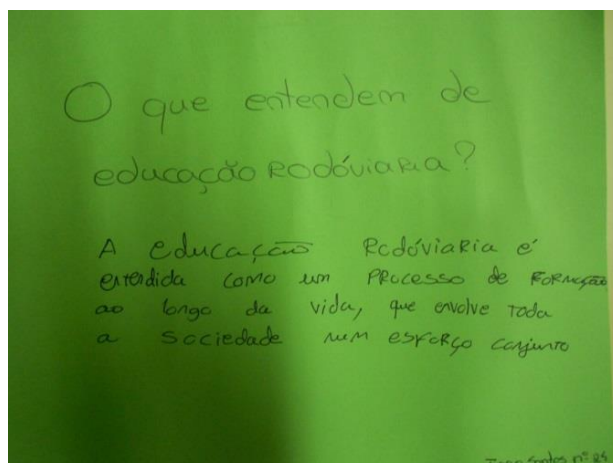 O que entendem de
educação Rodóviaria?
A educação Rodóviaria é
entendida como um processo de formação
ao longo da vida, que envolve toda
a sociedade num esforço conjunto
Santos nº